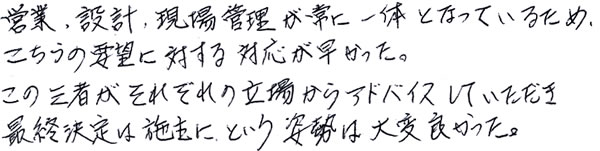 営業、設計、現場管理が常に一体となっているため、
こちらの要望に対する対応が早かった。
この三者がそれぞれの立場からアドバイスしていただき
最終決定は施主に、という姿勢は大変良かった。